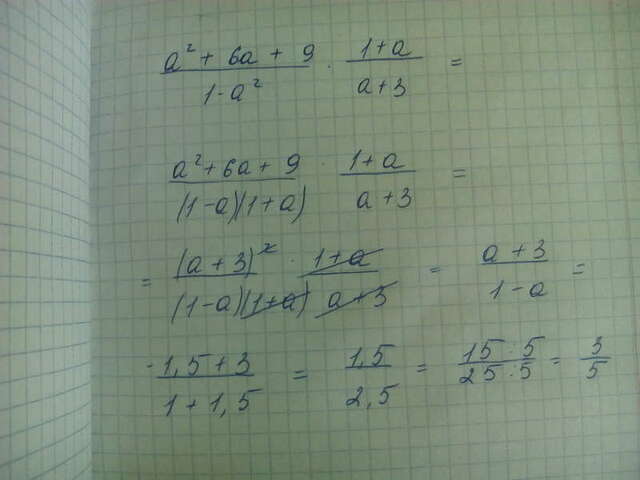 (a² + 6a + 9)/(1 - a²) · (1 + a)/(a + 3) =
(a² + 6a + 9)/((1 - a)(1 + a)) · (1 + a)/(a + 3) =
= (a + 3)²/((1 - a)(1 + a)) · (1 + a)/(a + 3) = (a + 3)/(1 - a) =
(-1,5 + 3)/(1 + 1,5) = 1,5/2,5 = (15 : 5)/(25 : 5) = 3/5